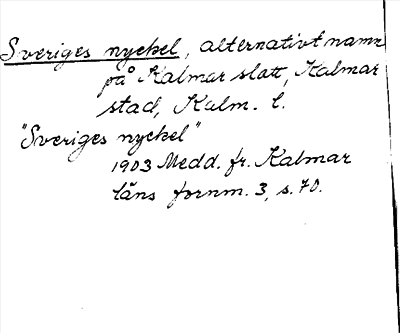 Sveriges nyckel, alternativt namn
på Kalmar slott, Kalmar
stad, Kalm. l.
"Sveriges nyckel"
1903 Medd. fr. Kalmar
läns fornm. 3, s. 70.